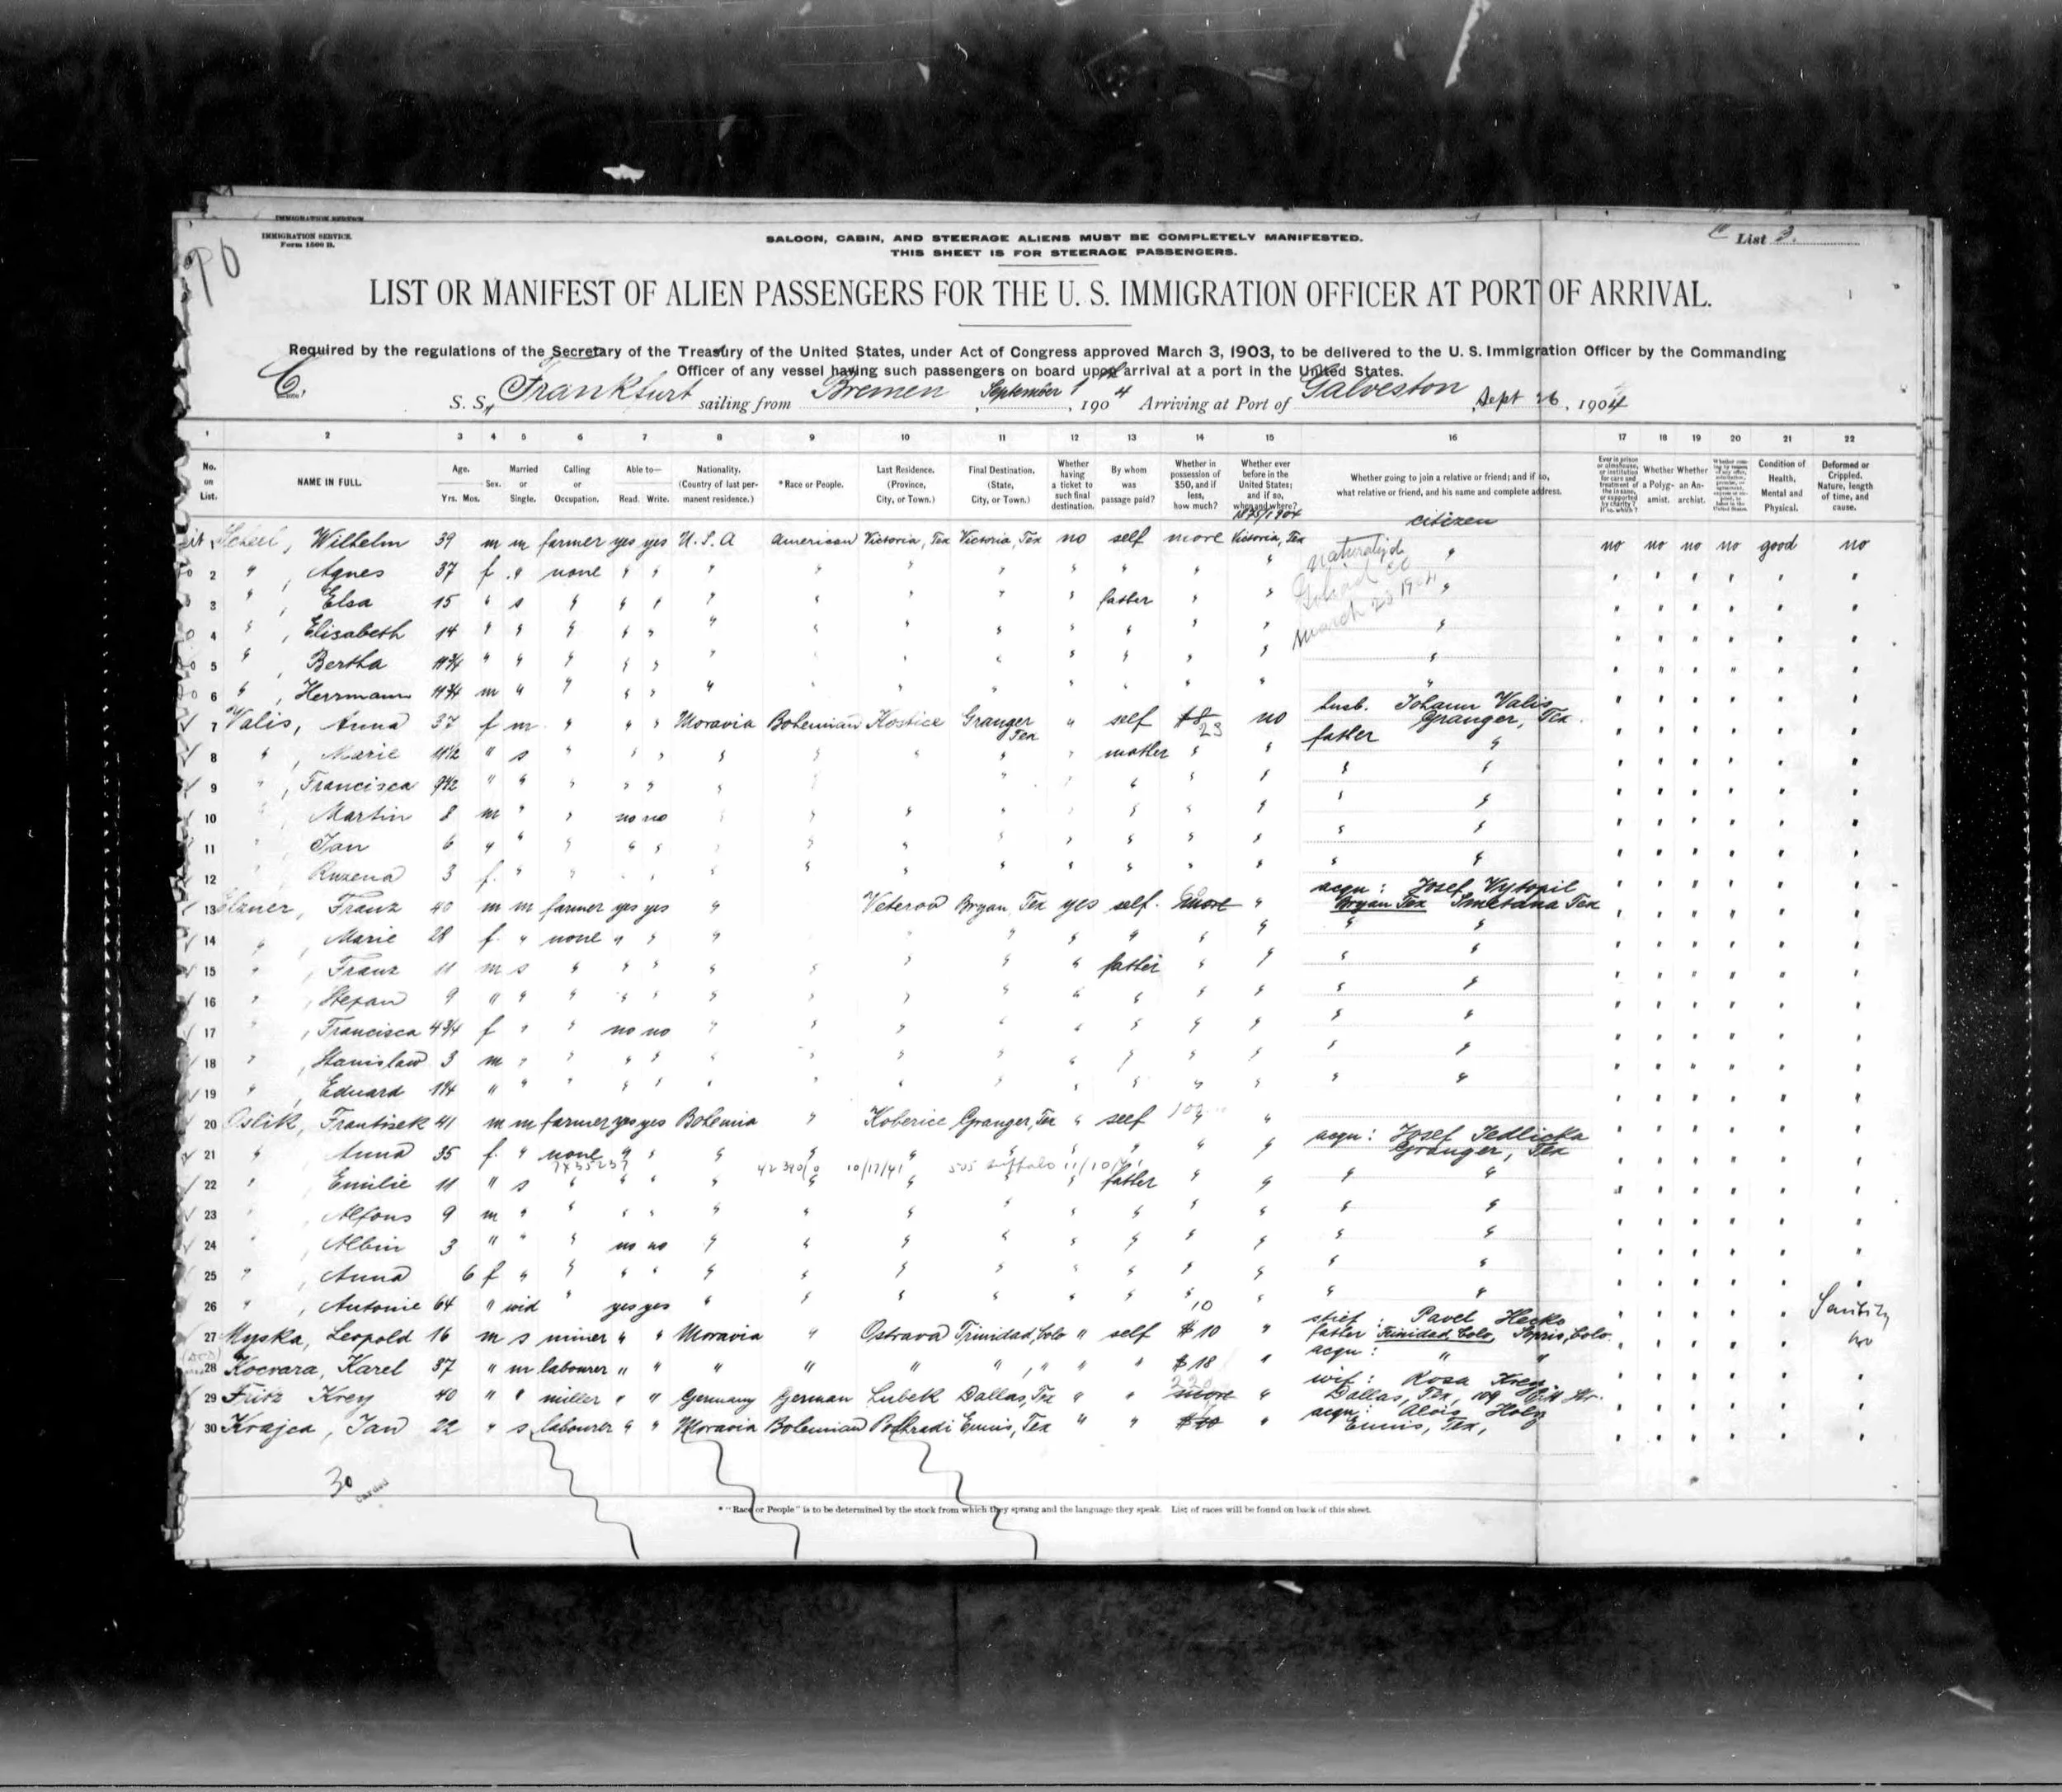 IMMIGRATION SERVICE
IMMIGRATION SERVICE.
Form 1500 B.
90
SALOON, CABIN, AND STEERAGE ALIENS MUST BE COMPLETELY MANIFESTED.
THIS SHEET IS FOR STEERAGE PASSENGERS.
C List 3.
LIST OR MANIFEST OF ALIEN PASSENGERS FOR THE U. S. IMMIGRATION OFFICER AT PORT OF ARRIVAL.
Required by the regulations of the Secretary of the Treasury of the United States, under Act of Congress approved March 3, 1903, to be delivered to the U. S. Immigration Officer by the Commanding
Officer of any vessel having such passengers on board upon arrival at a port in the United States.
C. S. S. Frankfurt sailing from Bremen September 1, 1904 Arriving at Port of Galveston Sept 26, 1904
1 2 3 4 5 6 7 8 9 10 11 12 13 14 15 16 17 18 19 20 21 22
No. on List. NAME IN FULL. Age. Yrs. Mos. Sex. Married or Single. Calling or Occupation. Able to— Read. Write. Nationality. (Country of last permanent residence.) *Race or People. Last Residence. (Province, City, or Town.) Final Destination. (State, City, or Town.) Whether having a ticket to such final destination. By whom was passage paid? Whether in possession of $50, and if less, how much? Whether ever before in the United States; and if so, when and where? Whether going to join a relative or friend; and if so, what relative or friend, and his name and complete address. Ever in prison or almshouse, or institution for care and treatment of the insane, or supported by charity? If so, which? Whether a Polygamist. Whether an Anarchist. Condition of Health, Mental and Physical. Deformed or Crippled. Nature, length of time, and cause.
1875/1904 citizen
1 Scheel, Wilhelm 39 m m farmer yes yes U.S.A American Victoria, Tex Victoria, Tex no self more Victoria, Tex no no no no good no
naturalizd
2 " , Agnes 37 f " none " " " " " " " " " " "
Goliad Co
3 " , Elsa 15 " s " " " " " " " " father " " "
March 23 1904
4 " , Elisabeth 14 " " " " " " " " " " " " " "
5 " , Bertha 11 3/4 " " " " " " " " " " " " " "
6 " , Herrmann 11 3/4 m " " " " " " " " " " " " "
7 Valis, Anna 37 f m " " " Moravia Bohemian Kostice Granger Tex " self 18 23 no husb. Johann Valis Granger, Tex.
8 " , Marie 11 1/2 " s " " " " " " " " mother " " father "
9 " , Francisca 9 1/2 " " " " " " " " " " " " " "
10 " Martin 8 m " " no no " " " " " " " " " "
11 " Jan 6 " " " " " " " " " " " " " " "
12 " Ruzena 3 f " " " " " " " " " " " " " "
13 Elzner, Franz 40 m m farmer yes yes " Veterov Bryan, Tex yes self. more " acqu: Josef Vytopil Bryan Tex Smetana Tex
14 " , Marie 28 f. " none " " " " " " " " " " "
15 " , Franz 11 m s " " " " " " " " father " " " "
16 " , Stepan 9 " " " " " " " " " " " " " " "
17 " , Francisca 4 3/4 f " " no no " " " " " " " " " "
18 " , Stanislaw 3 m " " " " " " " " " " " " " "
19 " , Eduard 1 1/4 " " " " " " " " " " " " " " "
20 Oslik, Frantisek 41 m m farmer yes yes Bohemia " Koberice Granger, Tex " self 100 " acqu: Josef Jedlicka Granger, Tex
21 " , Anna 35 f. " none " " " " " " " " " "
10/17/41 505 Buffalo
22 " , Emilie 11 " s " " " " " " " " father " " " "
23 " , Alfons 9 m " " " " " " " " " " " " " "
24 " , Albin 3 " " " no no " " " " " " " " " "
25 " , Anna 6 f " " " " " " " " " " " " " "
26 " , Antonie 64 " wid " yes yes " " " " " " " " "
27 Myska, Leopold 16 m s miner " " Moravia " Ostrava Trinidad, Colo " self $10 10 " stief father: Pavel Hecko Trinidad, Colo, Sopris, Colo.
28 Kocvara, Karel 37 " m labourer " " " " " " " " $18 " acqu: " "
29 Fritz Krey 40 " " miller " " Germany German Lubek Dallas, Tex " " more " wif: Rosa Krey, Dallas, Tex, 109
30 Krajca, Jan 22 " s labourer " " Moravia Bohemian Ennis, Tex " " $10 " acqu: Alois Holy Ennis, Tex,
30
carded
* "Race or People" is to be determined by the stock from which they sprang and the language they speak. List of races will be found on back of this sheet.